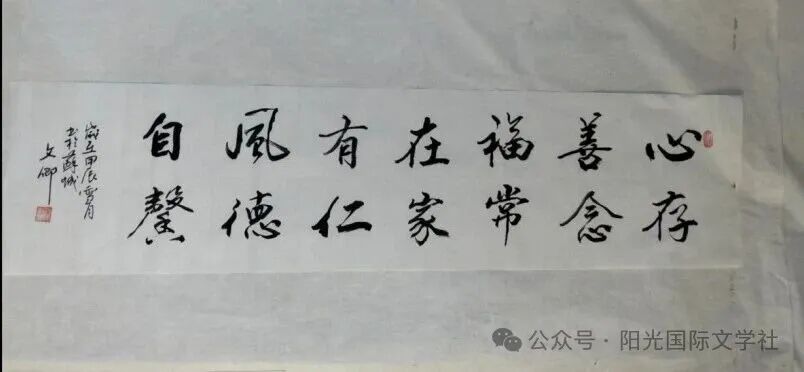 心存
善念
福常
在家
有仁
風德
自馨
歲在甲辰月
书於薛城
文卿
公众号·阳光国际文学社